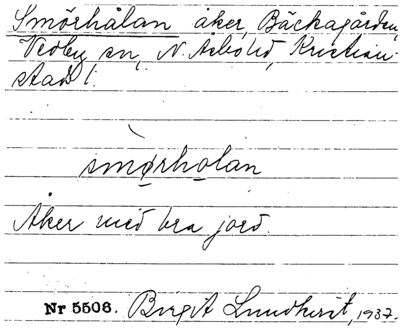 Smörhålan åker, Bäckagården,
Vedby sn, N. Åsbo hd, Kristian-
stad l.
smørholan
Åker med bra jord.
Nr 5506. Birgit Lundkvist, 1937.